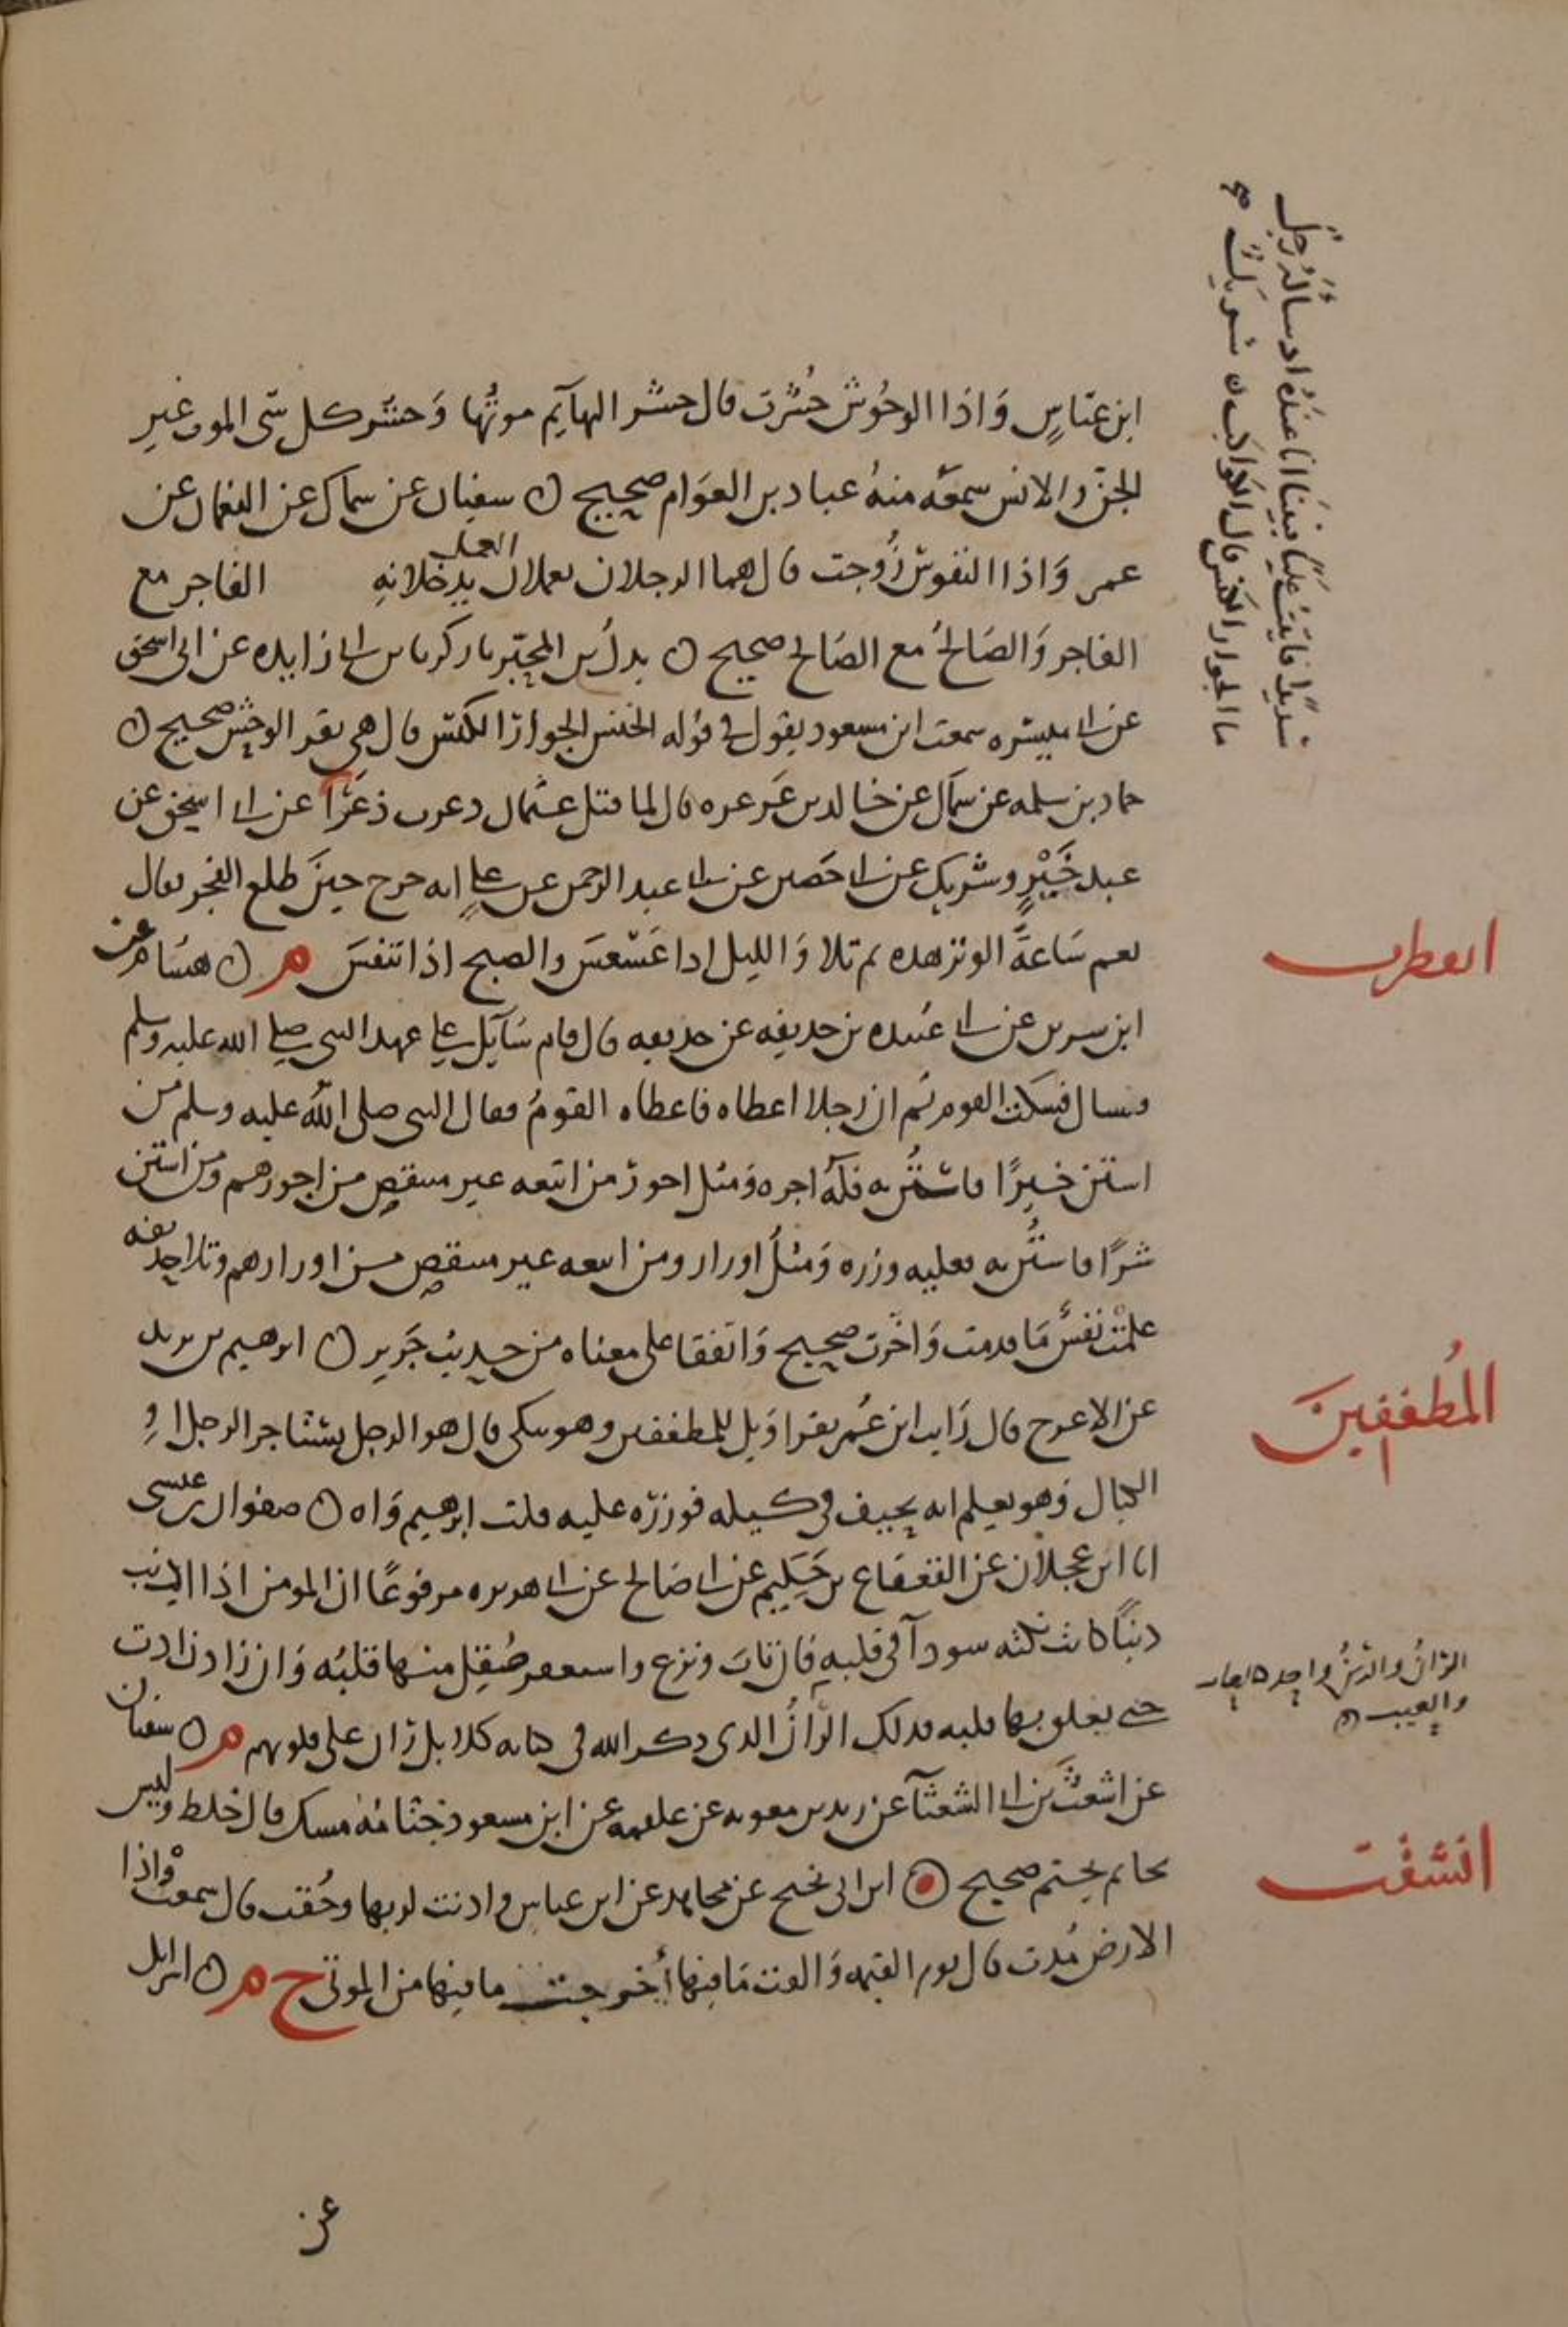 ابن عباسٍ وَاذا الوحُوش حُشرت قال حشر البهآيم موتُها وَحشر كل شى الموت غير
الجن والانس سمعَه منهُ عباد بن العوَام صحيح ن سفيان عن سماك عن النعمان عن
عمر وَاذا النفوسُ زُوجت قال هما الرجلان يعملان العمل يدخلانهِ الفاجر مع
الفاجر وَالصَالحُ مع الصَالح صحيح ن بدل بن المحبّر نا زكريا بن ابى زايده عن ابى اسحق
عن ابى ميسره سمعت ابن مسعود يقول فى قوله الخنس الجوار الكنّس قال هى بقر الوحش صحيح ن
حماد بن سلمه عن سماك عن خالد بن عَرعره قال لما قتل عثمان ذعرت ذعرًا عن ابى اسحق عن
عبد خَيْرٍ وشريك عن ابى حَصين عن ابى عبد الرحمن عن عليٍ انه خرج حينَ طلع الفجر فقال
نعم سَاعةُ الوتر هذه ثم تلا وَالليل اذا عَسْعسَ والصبح اذا تنفسَ م ن هشام عن
انفطرت
ابن سيرين عن ابى عُبيده بن حذيفه عن حذيفه قال قام سَآيل على عهد النبى صلى الله عليه وسلم
فسال فسكت القوم ثم ان رجلا اعطاه فاعطاه القومُ فقال النبى صلى الله عليه وسلم من
استن خيرًا فاستُن به فلهُ اجره وَمثل اجور من اتبعه غير منتقص من اجورهم ومن استن
شرًا فاستُن به فعليه وزره وَمثلُ اوزار ومن اتبعه غير منتقص من اوزارهم وتلا حذيفه
علمتْ نفسٌ مَا قدمت وَاخّرت صحيح وَاتفقا على معناه من حديث جَرير ن ابرهيم بن يزيد
المُطففينَ
عن الاعرج قال رَايت ابن عُمر يقرا وَيل للمطففين وهو يبكى قال هو الرجل يستاجر الرجل اوِ
الكيال وَهو يعلم انه يحيف فى كيله فوزرُه عليه قلت ابرهيم وَاه ن صفوان بن عيسى
انا ابن عجلان عن القعقاع بن حَكِيم عن ابى صَالح عن ابى هريره مرفوعًا ان المومن اذا اذنب
ذنبًا كانت نكته سودآ فى قلبهِ فان تابَ ونزع واستغفر صُقِل منها قلبُه وَان زاد زادت
حتى يغلق بها قلبه فذلك الرَّانُ الذى ذكر الله فى كتابه كلا بل ران على قلوبهم م ن سفيان
الرّانُ والرَّينُ واحد
والعيب ن
عن اشعث بن ابى الشعثآ عن يزيد بن معويه عن علقمه عن ابن مسعود ختامُهُ مسك قال خلط وليس
بخاتم يختم صحيح ن ابن ابى نجيح عن مجاهد عن ابن عباس واذنت لربها وحُقت قال سمعت واذا
انشقت
الارض مُدت قال يوم القيمه وَالقت مَا فيها أُخرجت ما فيها من الموتى خ م ن اسرايل
عن
شديدًا فاتيتُ عليًا فبينَا انا عندَهُ اذ سألهُ رجلٌ
ما الجوار الكنس قال الكواكب ن شريكٌ